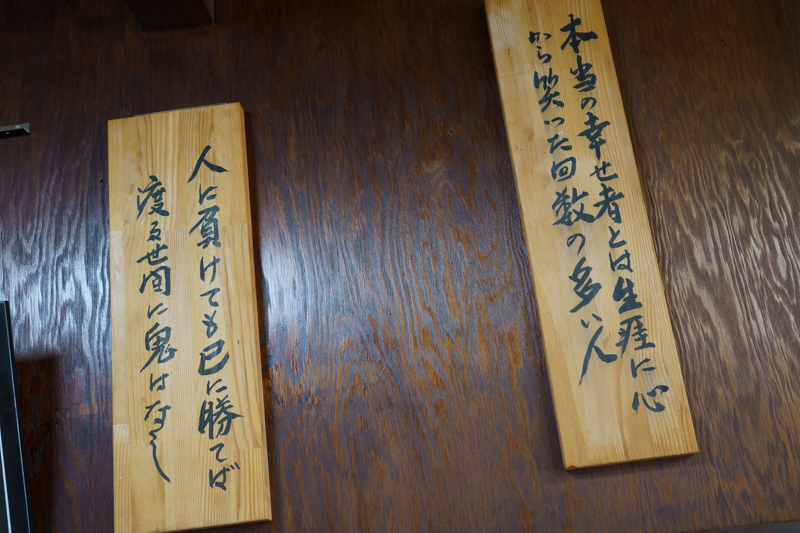 本当の幸せ者とは生涯に心
から笑った回数の多い人
人に負けても己に勝てば
渡る世間に鬼はなし